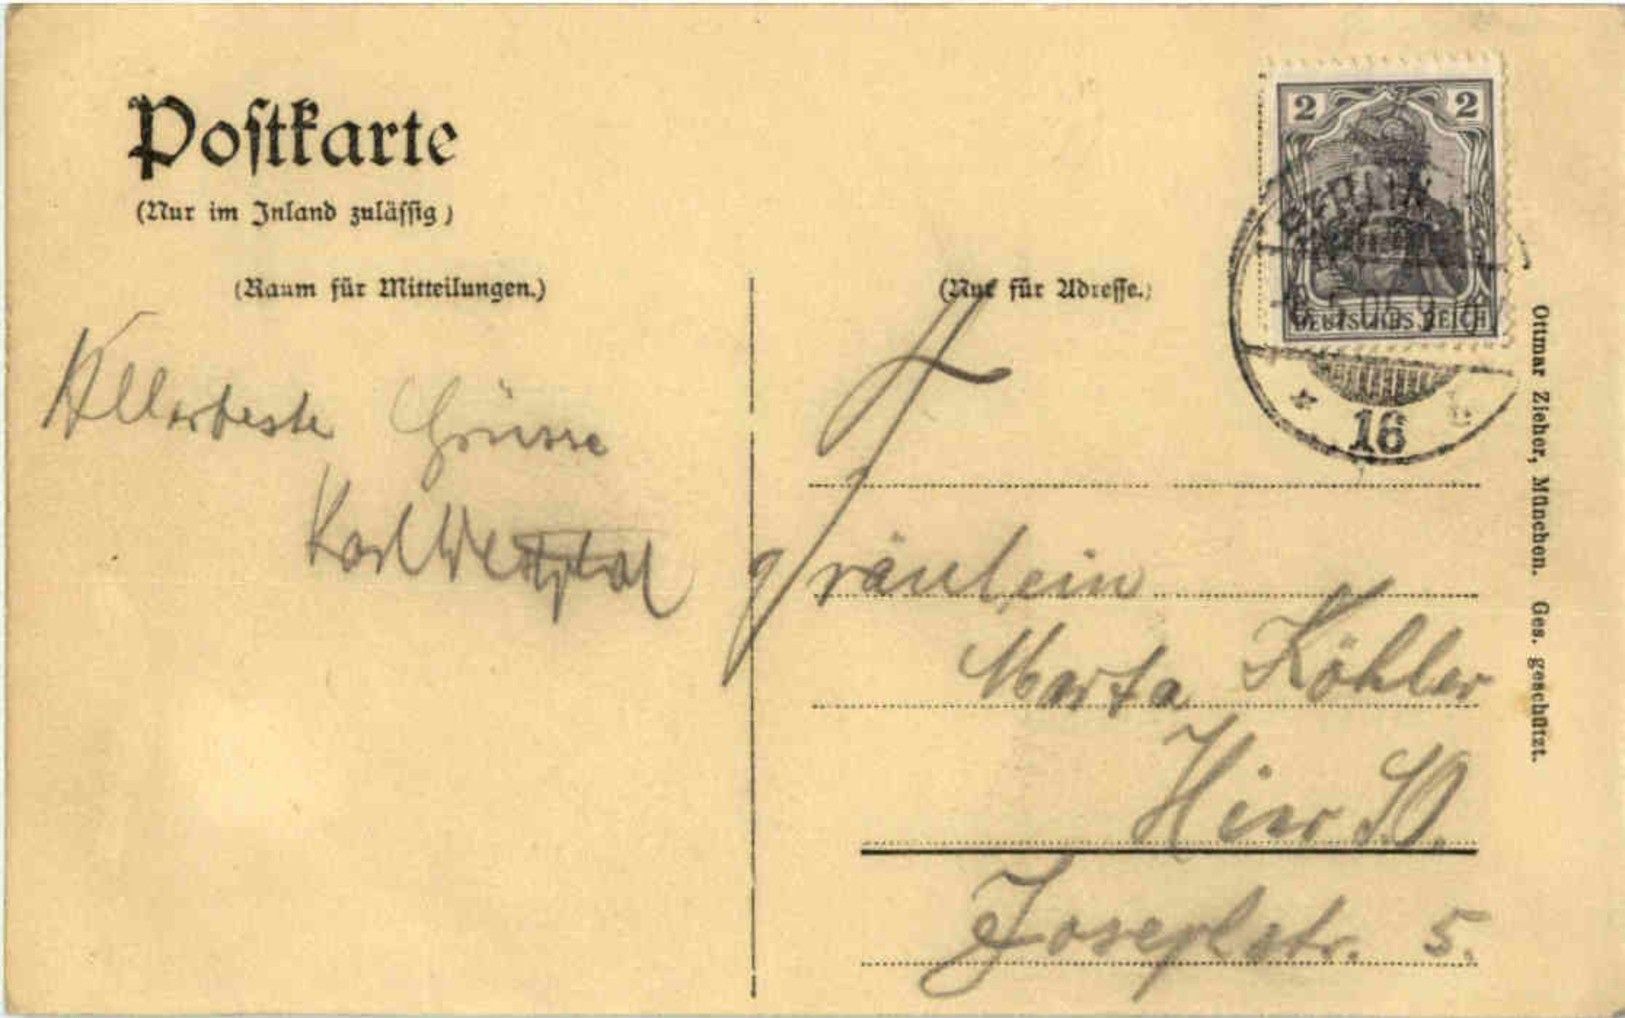 Postkarte
(Nur im Inland zulässig)
(Raum für Mitteilungen.)
Allerbeste Grüsse
Karl Westphal
(Nur für Adresse.)
Fräulein
Marta Köhler
Hier SO.
Josephstr. 5.
2 2
DEUTSCHES REICH
BERLIN
16
Ottmar Zieher, München. Ges. geschützt.